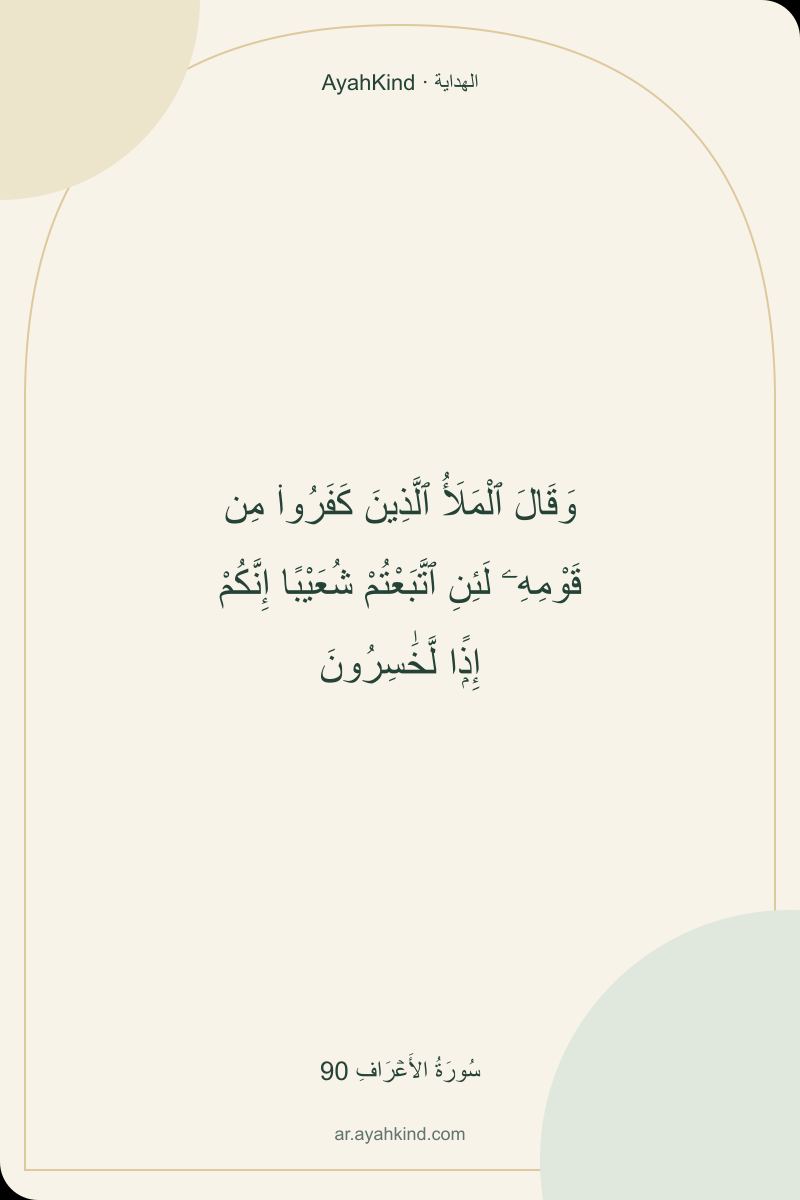 AyahKind · الهداية
وَقَالَ ٱلْمَلَأُ ٱلَّذِينَ كَفَرُوا۟ مِن
قَوْمِهِۦ لَئِنِ ٱتَّبَعْتُمْ شُعَيْبًا إِنَّكُمْ
إِذًۭا لَّخَـٰسِرُونَ
سُورَةُ الأَعۡرَافِ 90
ar.ayahkind.com